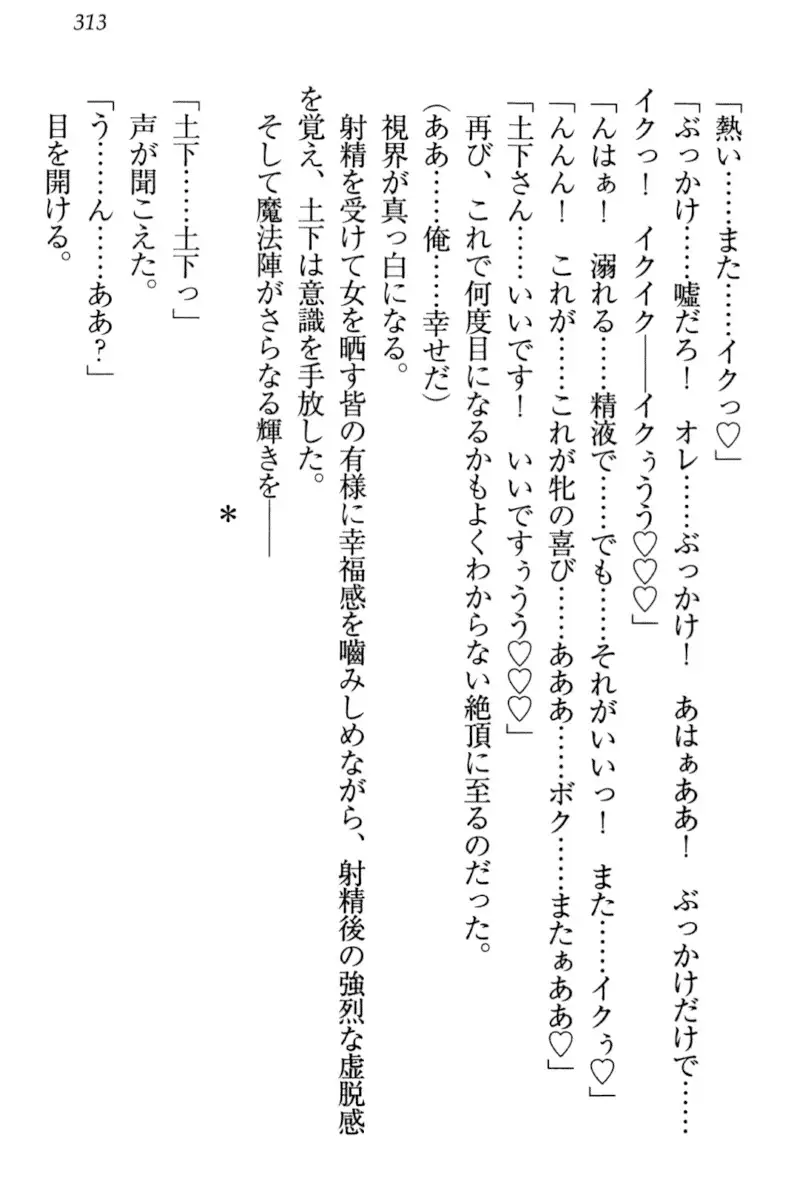 313
「熱い……また……イクっ♡」
「ぶっかけ……嘘だろ！　オレ……ぶっかけ！　あはぁああ！　ぶっかけだけで……
イクっ！　イクイク――イクぅうう♡♡♡」
「んはぁ！　溺れる……精液で……でも……それがいいっ！　また……イクぅ♡」
「んんん！　これが……これが牝の喜び……あああ……ボク……またぁああ♡」
「土下さん……いいです！　いいですぅうう♡♡♡」
再び、これで何度目になるかもよくわからない絶頂に至るのだった。
（ああ……俺……幸せだ）
視界が真っ白になる。
射精を受けて女を晒す皆の有様に幸福感を嚙みしめながら、射精後の強烈な虚脱感
を覚え、土下は意識を手放した。
そして魔法陣がさらなる輝きを――
＊
「土下……土下っ」
声が聞こえた。
「う……ん……ああ？」
目を開ける。